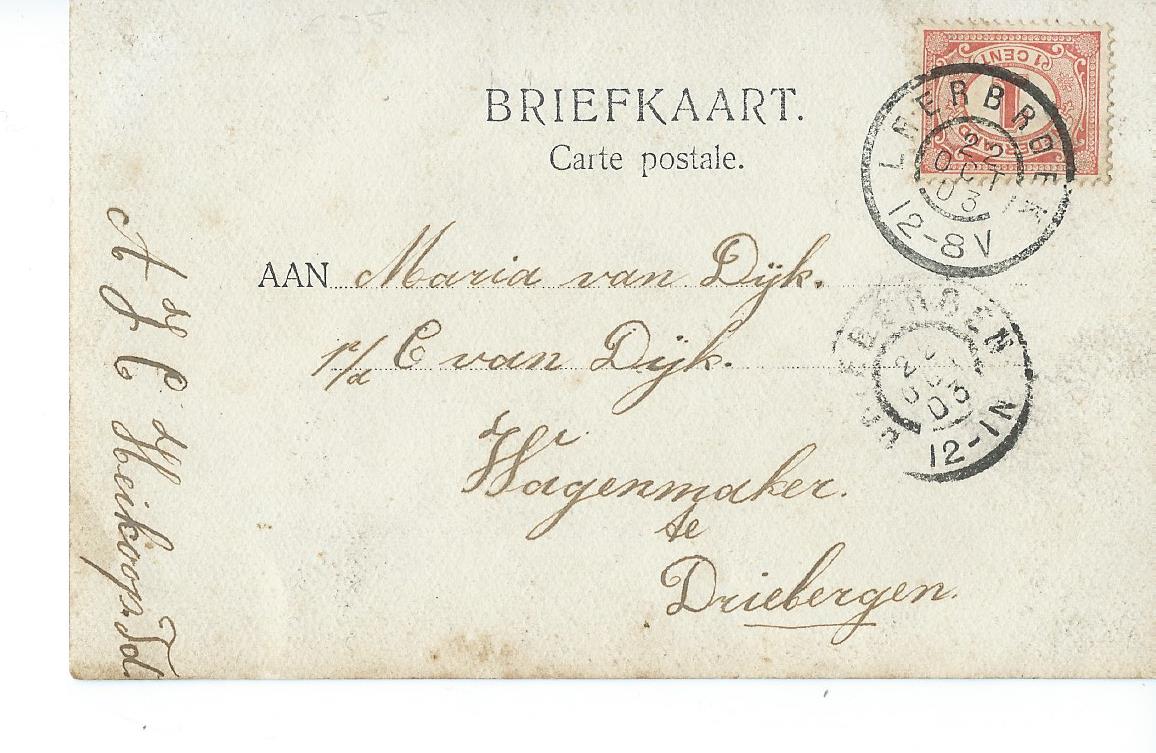 BRIEFKAART.
Carte postale.
1 CENT
1
LEERBROEK
22
OCT
03
12-8V
AAN Maria van Dijk.
p/a C van Dijk.
Wagenmaker.
te
Driebergen.
DRIEBERGEN
03
12-1N
Heikoop